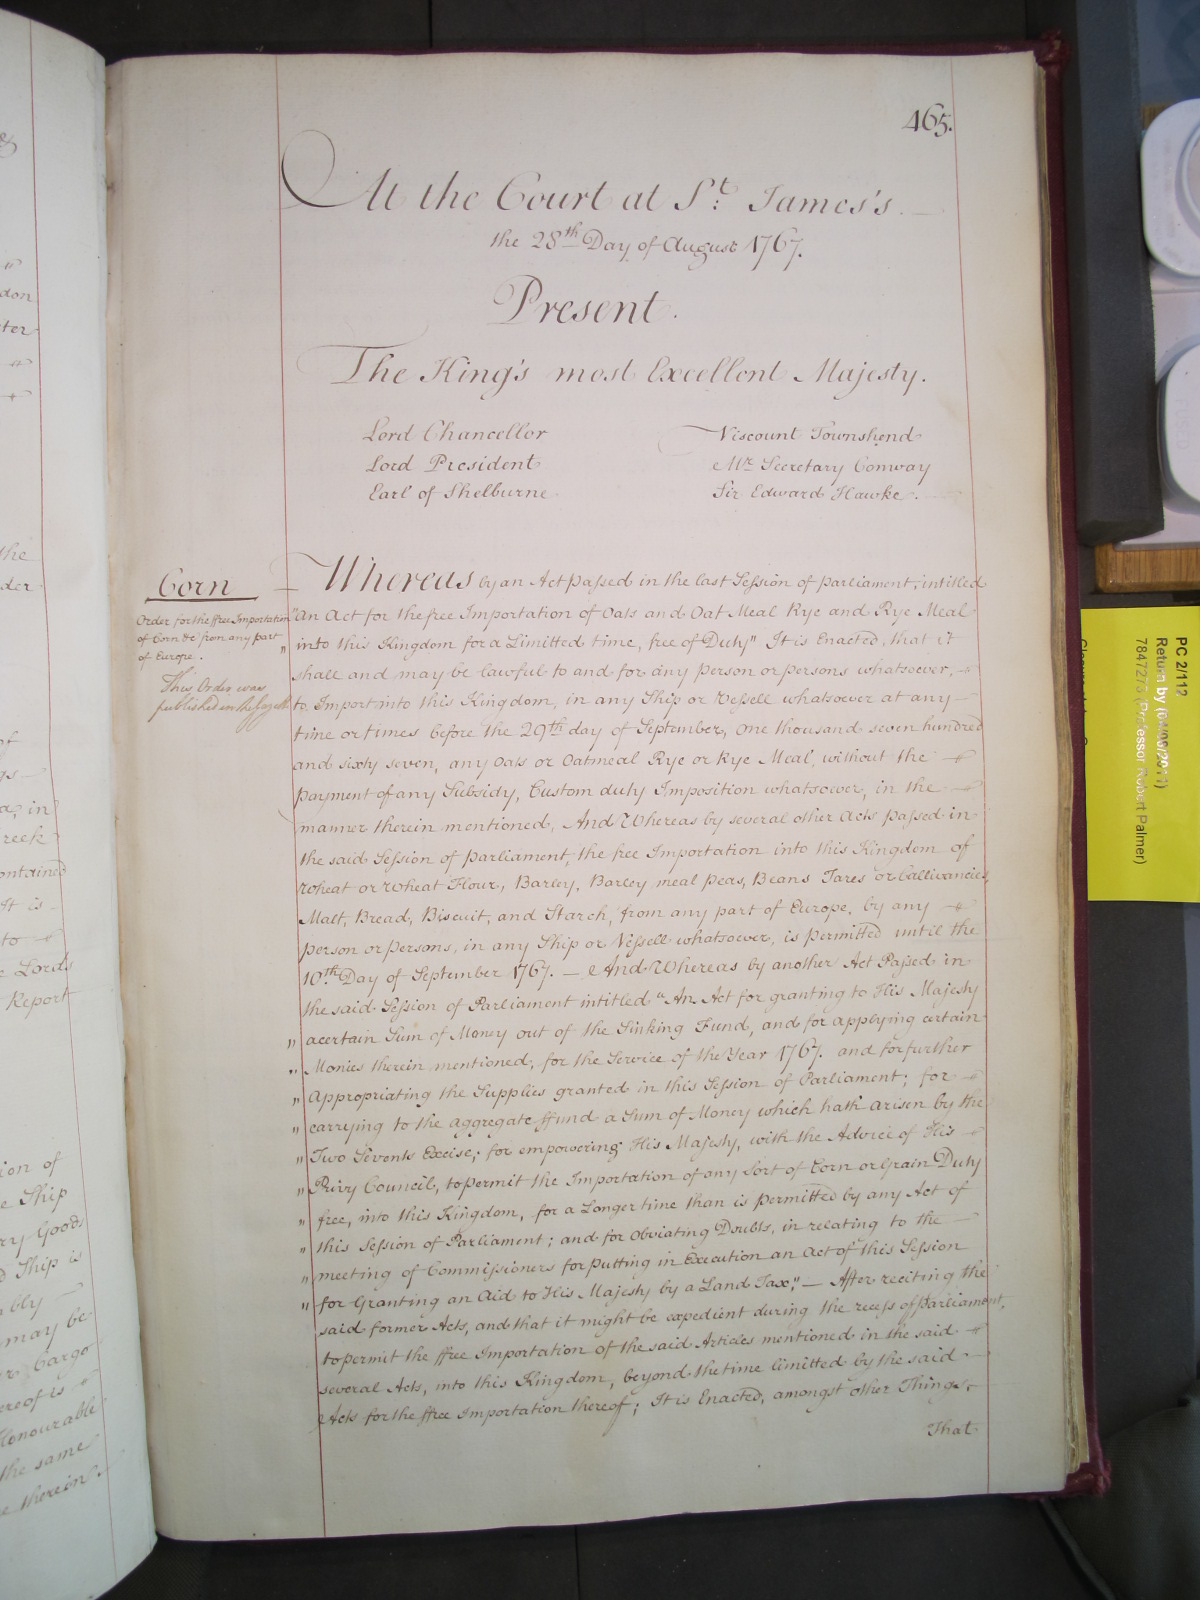 465.
At the Court at St. James's.
the 28th Day of August 1767.
Present.
The King's most Excellent Majesty.
Lord Chancellor
Lord President
Earl of Shelburne
Viscount Townshend
Mr. Secretary Conway
Sir Edward Hawke.
Corn
Order for the ffree Importation
of Corn &c from any part
of Europe.
This Order was
published in the Gazette
Whereas by an Act passed in the last Session of parliament, intitled
"An Act for the free Importation of Oats and Oat Meal Rye and Rye Meal
" into this Kingdom for a Limitted time, free of Duty" It is Enacted, that it
shall and may be lawful to and for any person or persons whatsoever,
to Import into this Kingdom, in any Ship or Vessell whatsoever at any
time or times before the 29th day of September, one thousand seven hundred
and sixty seven, any Oats or Oatmeal Rye or Rye Meal, without the
payment of any Subsidy, Custom duty Imposition whatsoever, in the
manner therein mentioned, And Whereas by several other Acts passed in
the said Session of parliament, the free Importation into this Kingdom of
Wheat or Wheat Flour, Barley, Barley meal Peas, Beans Tares or Callivancies,
Malt, Bread, Biscuit, and Starch, from any part of Europe, by any
person or persons, in any Ship or Vessell whatsoever, is permitted until the
10th Day of September 1767. — And Whereas by another Act Passed in
the said Session of Parliament intitled "An Act for granting to His Majesty
" a certain Sum of Money out of the Sinking Fund, and for applying certain
" Monies therein mentioned, for the Service of the Year 1767. and for further
" Appropriating the Supplies granted in this Session of Parliament; for
" carrying to the aggregate ffund a Sum of Money which hath arisen by the
" Two Sevenths Excise; for empowering His Majesty, with the Advice of His
" Privy Council, to permit the Importation of any Sort of Corn or Grain Duty
" free, into this Kingdom, for a Longer time than is permitted by any Act of
" this Session of Parliament; and for Obviating Doubts, in relating to the
" meeting of Commissioners for putting in Execution an Act of this Session
" for Granting an Aid to His Majesty by a Land Tax;" — After reciting the
said former Acts, and that it might be expedient during the recess of parliament,
to permit the ffree Importation of the said Articles mentioned in the said
several Acts, into this Kingdom, beyond the time limitted by the said
Acts for the ffree Importation thereof; It is Enacted, amongst other Things,
That
PC 2/112
Return by (04/09/2011)
(Professor Robert Palmer)